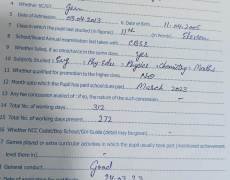 4 Whether SC/ST Gen
5 Date of Admission 03.04.2013 6. Date of Birth 11.04.2005
Class in which the pupil last studied (in figures) 11th (in words)
8 School/Board Annual examination last taken with CBSE
9 Whether failed, if so once/twice in the same class yes
10 Subjects Studied Eng, Phy Edu, Physics, Chemistry, Maths
11 Whether qualified for promotion to the higher class NO
12 Month upto which the Pupil has paid school dues March, 2023
13 Any fee concession availed of, the nature of the such concession
14 Total No of working days 312
15 Total No of working days present 272
16 Whether NCC Cadet/Boy School/Girl Guide (detail may be given)
Games played or extra curricular activities in which the pupil usually took part (mentioned achievement
level there in)
General conduct Good
Date of application for certificate